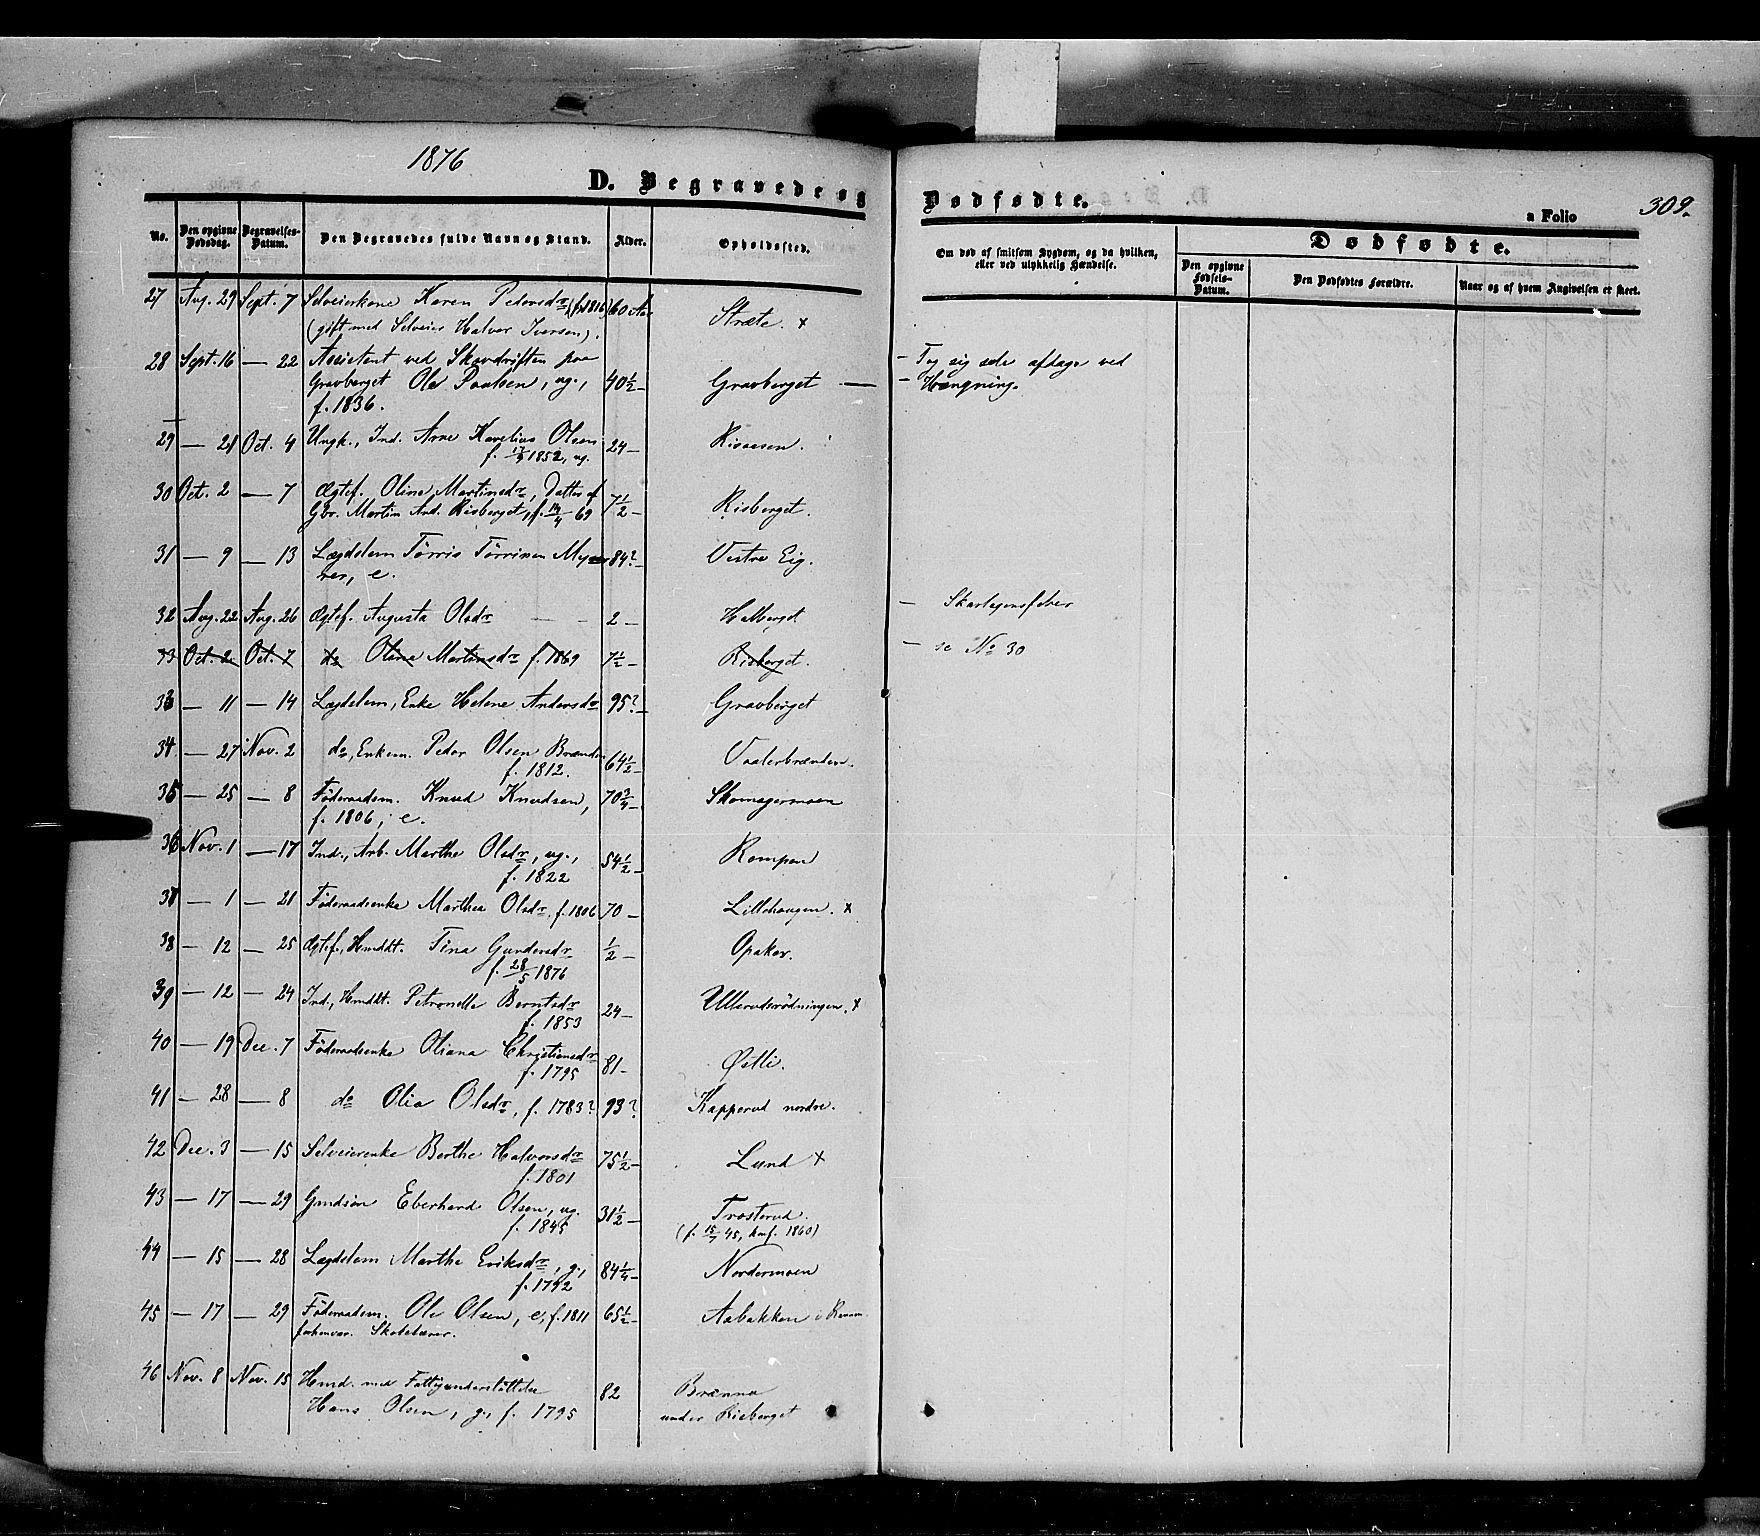 1876
D. Begravede og Dødfødte.
a Folio 309.
No.
Den opgivne Dødsdag.
Begravelses-Datum.
Den Begravedes fulde Navn og Stand.
Alder.
Opholdssted.
Om død af smitsom Sygdom, og da hvilken, eller ved ulykkelig Hændelse.
Dødfødte.
Den opgivne Fødsels-Datum.
Den Dødfødtes Forældre.
Naar og af hvem Angivelsen er skeet.
27 Aug. 29 Sept. 7 Selveierkone Karen Pedersdr (f. 1816) 60 Aar Stræte. x
(gift med Selveier Halvor Iversen).
28 Sept. 16 — 22 Assistent ved Skovdriften paa — Tog sig selv afdage ved
Gravberget Ole Paulsen, ug., 40½ — Gravberget — — Hængning.
f. 1836.
29 — 21 Oct. 4 Ungk., Ind. Arne Karelius Olsen 24 — Risaasen.
f. 1852, ug.
30 Oct. 2 — 7 Ægtef. Oline Martinsdr, Datter af 7½ — Risberget.
Gbr. Martin And. Risberget, f. 14/4 69
31 — 9 — 13 Lægdslem Tørris Tørrisen My 84? — Vestre Eig.
rer, e.
32 Aug. 22 Aug. 26 Ægtef. Augusta Olsdr — — 2 — Halberget — Skarlagensfeber
33 Oct. 2 Oct. 7 do Oline Martinsdr f. 1869 7½ — Risberget. — se No 30
33 — 11 — 14 Lægdslem, Enke Helene Andersdr 95? — Gravberget
34 — 27 Nov. 2 do, Enkem. Peder Olsen Brænden 64½ — Vaalerbrænden.
f. 1812.
35 — 25 — 8 Føderaadsm. Knud Knudsen, 70¾ — Skomagermoen
f. 1806, e.
36 Nov. 1 — 17 Ind., Arb. Marthe Olsdr, ug., 54½ — Rompen
f. 1822
37 — 1 — 21 Føderaadsenke Marthea Olsdr, f. 1806 70 — Lillehaugen. x
38 — 12 — 25 Ægtef., Hmddt. Tina Gundersdr ½ — Opaker.
f. 28/5 1876
39 — 12 — 24 Ind., Hmddt. Petronelle Berntsdr 24 — Ullerudsrødningen. x
f. 1853
40 — 19 Dec. 7 Føderaadsenke Oliana Christiansdr 81 — Østli.
f. 1795
41 — 28 — 8 do Olia Olsdr, f. 1783? 93? Kapperud nordre.
42 Dec. 3 — 15 Selveierenke Berthe Halvorsdr 75½ — Lund x
f. 1801
43 — 17 — 29 Gmdsøn Eberhard Olsen, ug. 31½ — Trøsterud.
f. 1845 (f. 15/7 45, konf. 1860)
44 — 15 — 28 Lægdslem Marthe Eriksdr, g., 84¼ — Nordermoen
f. 1792
45 — 17 — 29 Føderaadsm. Ole Olsen, e, f. 1811 65½ — Aabakken i
forhenvær. Skolelærer.
46 Nov. 8 Nov. 15 Hmd. med Fattigunderstøttelse 82 Brænna
Hans Olsen, g., f. 1795 under Risberget